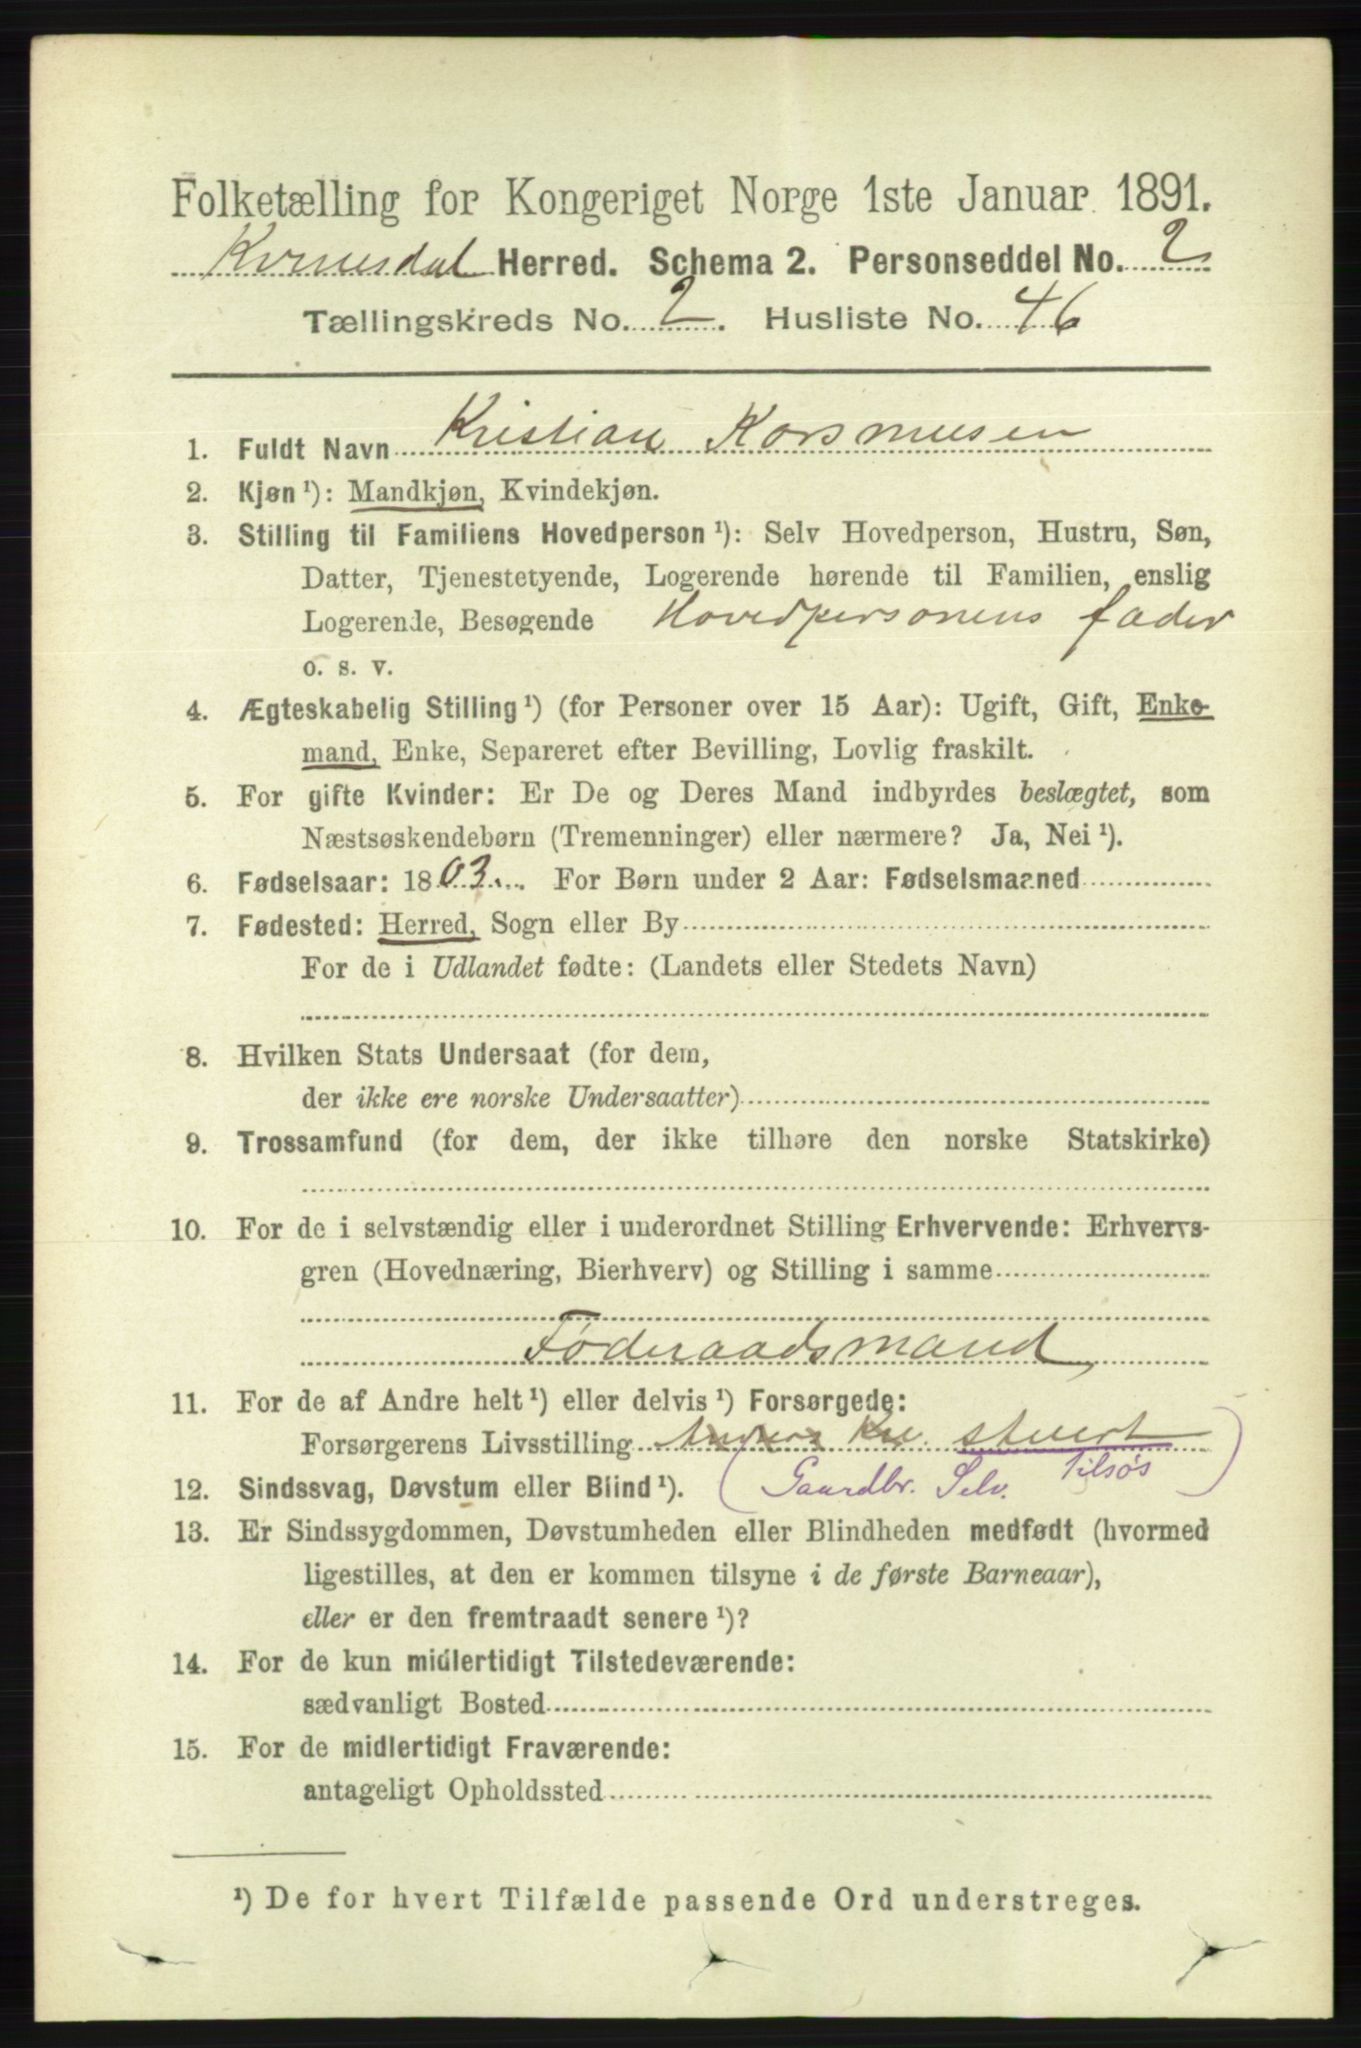 Folketælling for Kongeriget Norge 1ste Januar 1891.
Kvinesdal Herred. Schema 2. Personseddel No. 2
Tællingskreds No. 2. Husliste No. 46
1. Fuldt Navn Kristian Korsmusen
2. Kjøn ¹): Mandkjøn, Kvindekjøn.
3. Stilling til Familiens Hovedperson ¹): Selv Hovedperson, Hustru, Søn,
Datter, Tjenestetyende, Logerende hørende til Familien, enslig
Logerende, Besøgende Hovedpersonens fader
o. s. v.
4. Ægteskabelig Stilling ¹) (for Personer over 15 Aar): Ugift, Gift, Enke-
mand, Enke, Separeret efter Bevilling, Lovlig fraskilt.
5. For gifte Kvinder: Er De og Deres Mand indbyrdes beslægtet, som
Næstsøskendebørn (Tremenninger) eller nærmere? Ja, Nei ¹).
6. Fødselsaar: 1803. For Børn under 2 Aar: Fødselsmaaned
7. Fødested: Herred, Sogn eller By
For de i Udlandet fødte: (Landets eller Stedets Navn)
8. Hvilken Stats Undersaat (for dem,
der ikke ere norske Undersaatter)
9. Trossamfund (for dem, der ikke tilhøre den norske Statskirke)
10. For de i selvstændig eller i underordnet Stilling Erhvervende: Erhvervs-
gren (Hovednæring, Bierhverv) og Stilling i samme
Føderaadsmand
11. For de af Andre helt ¹) eller delvis ¹) Forsørgede:
Forsørgerens Livsstilling
12. Sindssvag, Døvstum eller Blind ¹). (Gaardbr. Selv.
13. Er Sindssygdommen, Døvstumheden eller Blindheden medfødt (hvormed
ligestilles, at den er kommen tilsyne i de første Barneaar),
eller er den fremtraadt senere ¹)?
14. For de kun midlertidigt Tilstedeværende:
sædvanligt Bosted
15. For de midlertidigt Fraværende:
antageligt Opholdssted
¹) De for hvert Tilfælde passende Ord understreges.